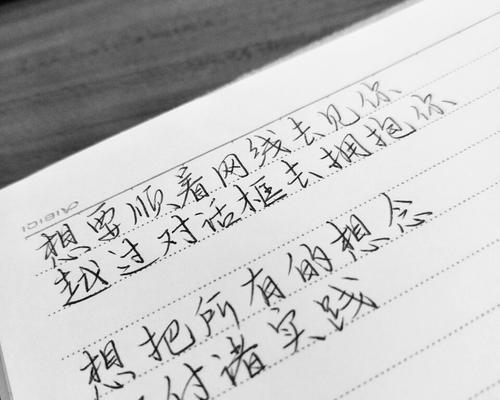 想要顺着网线去见你
越过对话框去拥抱你
想把所有的想念
付诸实践